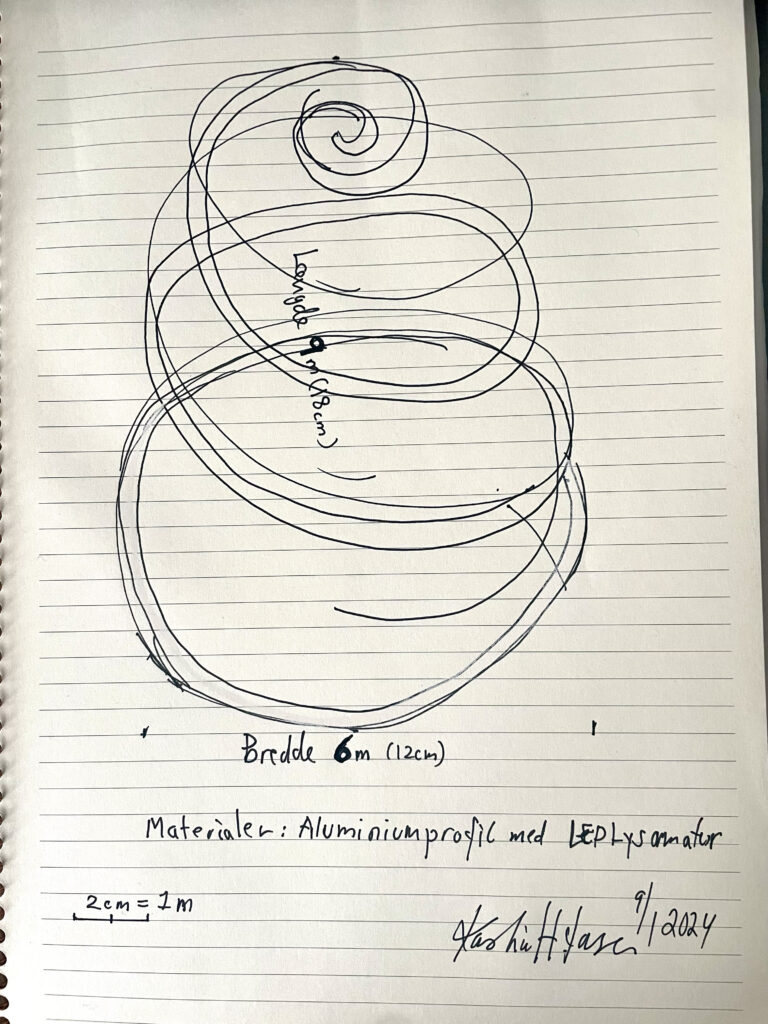 Længde 9 m (18cm)
Bredde 6m (12cm)
Materialer: Aluminiumprofil med LED Lysarmatur
2cm = 1m
9/1 2024